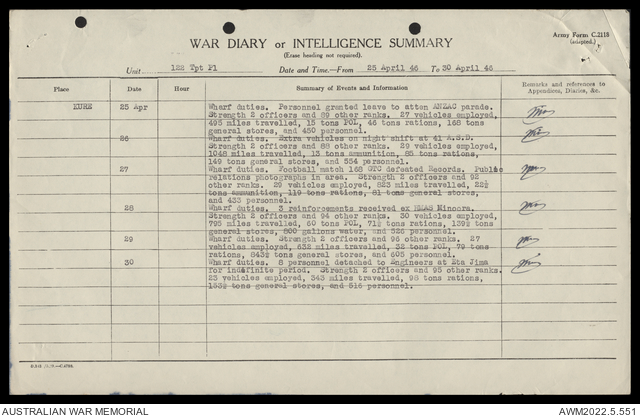 Army Form C.2118
(adapted.)
WAR DIARY or INTELLIGENCE SUMMARY
(Erase heading not required).
Unit 122 Tpt Pl Date and Time.—From 25 April 46 To 30 April 46
Place Date Hour Summary of Events and Information Remarks and references to
Appendices, Diaries, &c.
KURE 25 Apr Wharf duties. Personnel granted leave to atten ANZAC parade.
Strength 2 officers and 89 other ranks. 27 vehicles employed,
495 miles travelled, 15 tons POL, 46 tons rations, 168 tons
general stores, and 450 personnel.
26 Wharf duties. Extra vehicles on night shift at 41 A.S.D.
Strength 2 officers and 88 other ranks. 29 vehicles employed,
1048 miles travelled, 13 tons ammunition, 85 tons rations,
149 tons general stores and 554 personnel.
27 Wharf duties. Football match 168 GTC defeated Records. Public
relations photographs in area. Strength 2 officers and 92
other ranks. 29 vehicles employed, 823 miles travelled, 22½
tons ammunition, 119 tons rations, 81 tons general stores,
and 433 personnel.
28 Wharf duties. 3 reinforcements received ex HMAS Kinoora.
Strength 2 officers and 94 other ranks. 30 vehicles employed,
795 miles travelled, 60 tons POL, 71½ tons rations, 139½ tons
general stores, 800 gallons water, and 526 personnel.
29 Wharf duties. Strength 2 officers and 96 other ranks. 27
vehicles employed, 632 miles travelled, 32 tons POL, 79 tons
rations, 643½ tons general stores, and 605 personnel.
30 Wharf duties. 8 personnel detached to Engineers at Eta Jima
for indefinite period. Strength 2 officers and 95 other ranks.
23 vehicles employed, 343 miles travelled, 98 tons rations,
153½ tons general stores, and 516 personnel.
AUSTRALIAN WAR MEMORIAL AWM2022.5.551